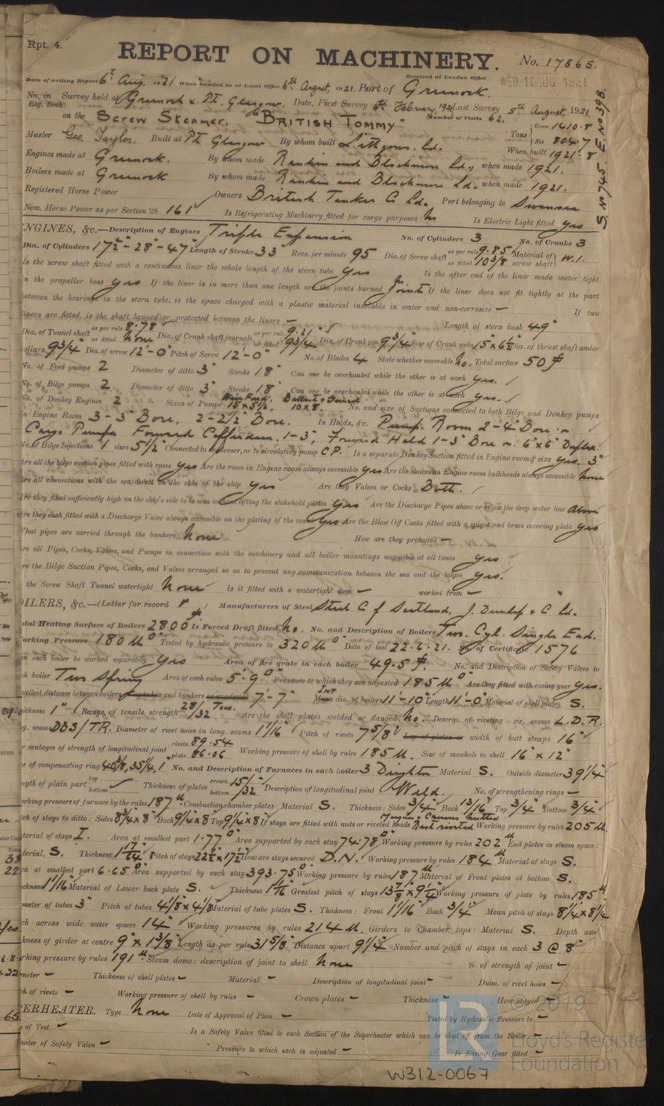 Rpt. 4.
REPORT ON MACHINERY. No. 17666.
Date of writing Report 6th Aug. 1921 When handed in at Local Office 6th August, 1921. Port of Greenock.
Received at London Office WED 10 AUG 1921
No. in Survey held at Greenock & Pt. Glasgow. Date, First Survey February, Last Survey 5th August, 1921
Reg. Book. Number of Visits 62.
on the Screw Steamer, "BRITISH TOMMY"
Master Geo. Taylor. Built at Pt Glasgow By whom built Lithgows. Ld. When built 1921.8
Engines made at Greenock. By whom made Rankin and Blackmore Ld., when made 1921.
Boilers made at Greenock By whom made Rankin and Blackmore Ld. when made 1921.
Registered Horse Power Owners British Tanker C. Ld. Port belonging to Swansea
Nom. Horse Power as per Section 28 161 Is Refrigerating Machinery fitted for cargo purposes No Is Electric Light fitted yes
S. No 745. E. No 398.
ENGINES, &c.—Description of Engines Triple Expansion No. of Cylinders 3 No. of Cranks 3
Dia. of Cylinders 17½"-28"-47" Length of Stroke 33" Revs. per minute 95 Dia. of Screw shaft as per rule 9.85 as fitted 10⅜ Material of screw shaft W.I.
Is the screw shaft fitted with a continuous liner the whole length of the stern tube yes Is the after end of the liner made water tight
in the propeller boss yes If the liner is in more than one length are the joints burned Joint If the liner does not fit tightly at the part
between the bearings in the stern tube, is the space charged with a plastic material insoluble in water and non-corrosive - If two
liners are fitted, is the shaft lapped or protected between the liners - Length of stern bush 49"
Dia. of Tunnel shaft as per rule 8.78 as fitted None Dia. of Crank shaft journals as per rule 9.21 as fitted 9¾ Dia. of Crank pin 9¾ Size of Crank webs Dia. of thrust shaft under
collars 9¾ Dia. of screw 12'-0" Pitch of Screw 12'-0" No. of Blades 4 State whether moveable No. Total surface 50
No. of Feed pumps 2 Diameter of ditto 3" Stroke 18" Can one be overhauled while the other is at work yes.
No. of Bilge pumps 2 Diameter of ditto 3" Stroke 18" Can one be overhauled while the other is at work yes.
No. of Donkey Engines 2 Sizes of Pumps No. and size of Suctions connected to both Bilge and Donkey pumps
In Engine Room 3-3" Bore, 2-2½ Bore. In Holds, &c. Pump Room 2-4" Bore
Cargo Pumps Forward Cofferdam. 1-3"; Forward Hold 1-3" Bore 6"x6" Duplex.
No. of Bilge Injections 1 sizes 5½ Connected to condenser, or to circulating pump C.P. Is a separate Donkey Suction fitted in Engine room & size yes. 3"
Are all the bilge suction pipes fitted with roses yes Are the roses in Engine room always accessible yes Are the sluices on Engine room bulkheads always accessible None
Are all connections with the sea direct on the skin of the ship yes Are they Valves or Cocks Both.
Are they fitted sufficiently high on the ship's side to be seen without lifting the stokehold plates yes Are the Discharge Pipes above or below the deep water line above
Are they each fitted with a Discharge Valve always accessible on the plating of the vessel yes Are the Blow Off Cocks fitted with a spigot and brass covering plate yes
What pipes are carried through the bunkers None How are they protected -
Are all Pipes, Cocks, Valves, and Pumps in connexion with the machinery and all boiler mountings accessible at all times yes
Are the Bilge Suction Pipes, Cocks, and Valves arranged so as to prevent any communication between the sea and the bilges yes.
Is the Screw Shaft Tunnel watertight None Is it fitted with a watertight door - worked from -
BOILERS, &c.—(Letter for record Manufacturers of Steel Steel C. of Scotland, J. Dunlop & C. Ld.
Total Heating Surface of Boilers 2800 Is Forced Draft fitted No. No. and Description of Boilers Two. Cyl. Single End.
Working Pressure 180 Tested by hydraulic pressure to 320 Date of test 22.6.21. No. of Certificate 1576
Can each boiler be worked separately yes Area of fire grate in each boiler 49.5 No. and Description of Safety Valves to
each boiler Two Spring Area of each valve 5.9 Pressure to which they are adjusted 185 Are they fitted with easing gear yes.
Smallest distance between boilers and bunkers 7"-7" dia. of boilers 11'-10" Length 11'-0" Material of shell plates S.
Thickness 1" Range of tensile strength 28/32 Tons. Are the shell plates welded or flanged No. Descrip. of riveting: cir. seams L.D.R.
long. seams DBS/TR. Diameter of rivet holes in long. seams 1 1/16 Pitch of rivets 7⅝ width of butt straps 16"
Per centages of strength of longitudinal joint rivets 89.54 plate 86.06 Working pressure of shell by rules 185 Size of manhole in shell 16"x12"
Size of compensating ring No. and Description of Furnaces in each boiler 3 Deighton Material S. Outside diameter 39¼
Length of plain part Thickness of plates Description of longitudinal joint Weld. No. of strengthening rings -
Working pressure of furnace by the rules 187 Combustion chamber plates: Material S. Thickness: Sides ¾ Back 13/16 Top ¾ Bottom ¾
Working pressure by rules 205
Material of stays I. Area at smallest part 1.77 Area supported by each stay 74.78 Working pressure by rules 202 End plates in steam space:
Material S. Thickness Pitch of stays How are stays secured D.N. Working pressure by rules 184 Material of stays S.
Area at smallest part 6.65 Area supported by each stay 393.75 Working pressure by rules 187 Material of Front plates at bottom S.
Thickness 11/16 Material of Lower back plate S. Thickness Greatest pitch of stays Working pressure of plate by rules 185
Diameter of tubes 3" Pitch of tubes 4⅛x4⅛ Material of tube plates S. Thickness: Front 11/16 Back ¾ Mean pitch of stays 8¼x8¼
Pitch across wide water spaces 14" Working pressures by rules 214 Girders to Chamber tops: Material S. Depth and
thickness of girder at centre 9"x1⅜ Length as per rule 31⅝ Distance apart 9¼ Number and pitch of stays in each 3 @ 8"
Working pressure by rules 191 Steam dome: description of joint to shell None % of strength of joint -
Diameter - Thickness of shell plates - Material - Description of longitudinal joint - Diam. of rivet holes -
Pitch of rivets - Working pressure of shell by rules - Crown plates - Thickness - How stayed -
SUPERHEATER. Type None Date of Approval of Plan - Tested by Hydraulic Pressure to -
Date of Test - Is a Safety Valve fitted to each Section of the Superheater which can be shut off from the Boiler -
Diameter of Safety Valve - Pressure to which each is adjusted - Is Easing Gear fitted -
© 2019
Lloyd's Register
Foundation
W312-0067